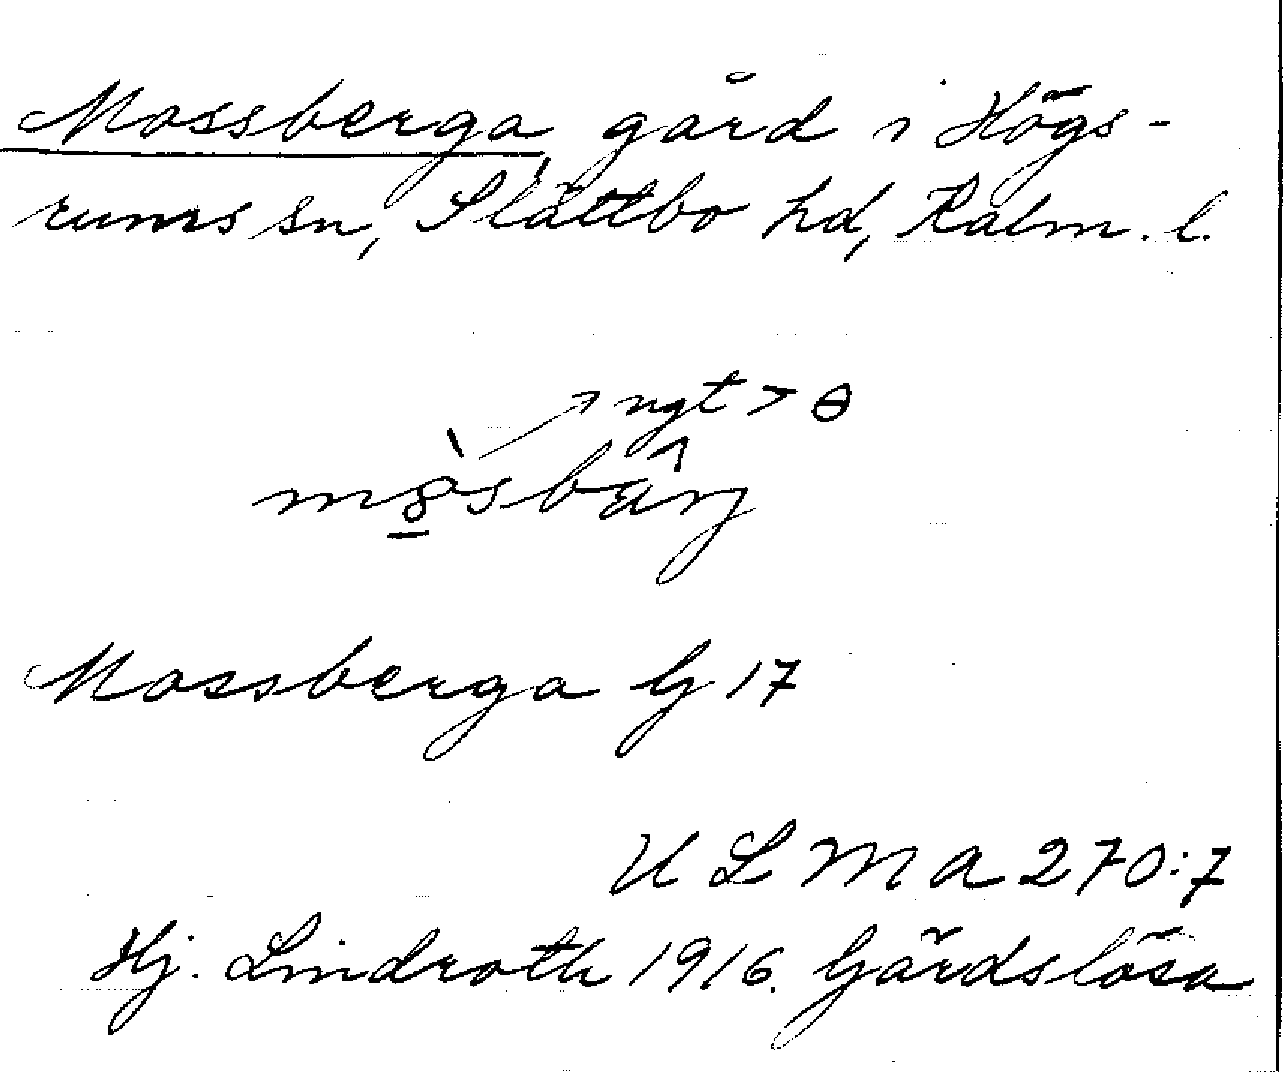 Mossberga, gård i Högs-
rums sn, Slättbo hd, Kalm. l.
ngt > ɵ
Mossberga G 17
ULMA 270:7
Hj. Lindroth 1916. Gärdslösa